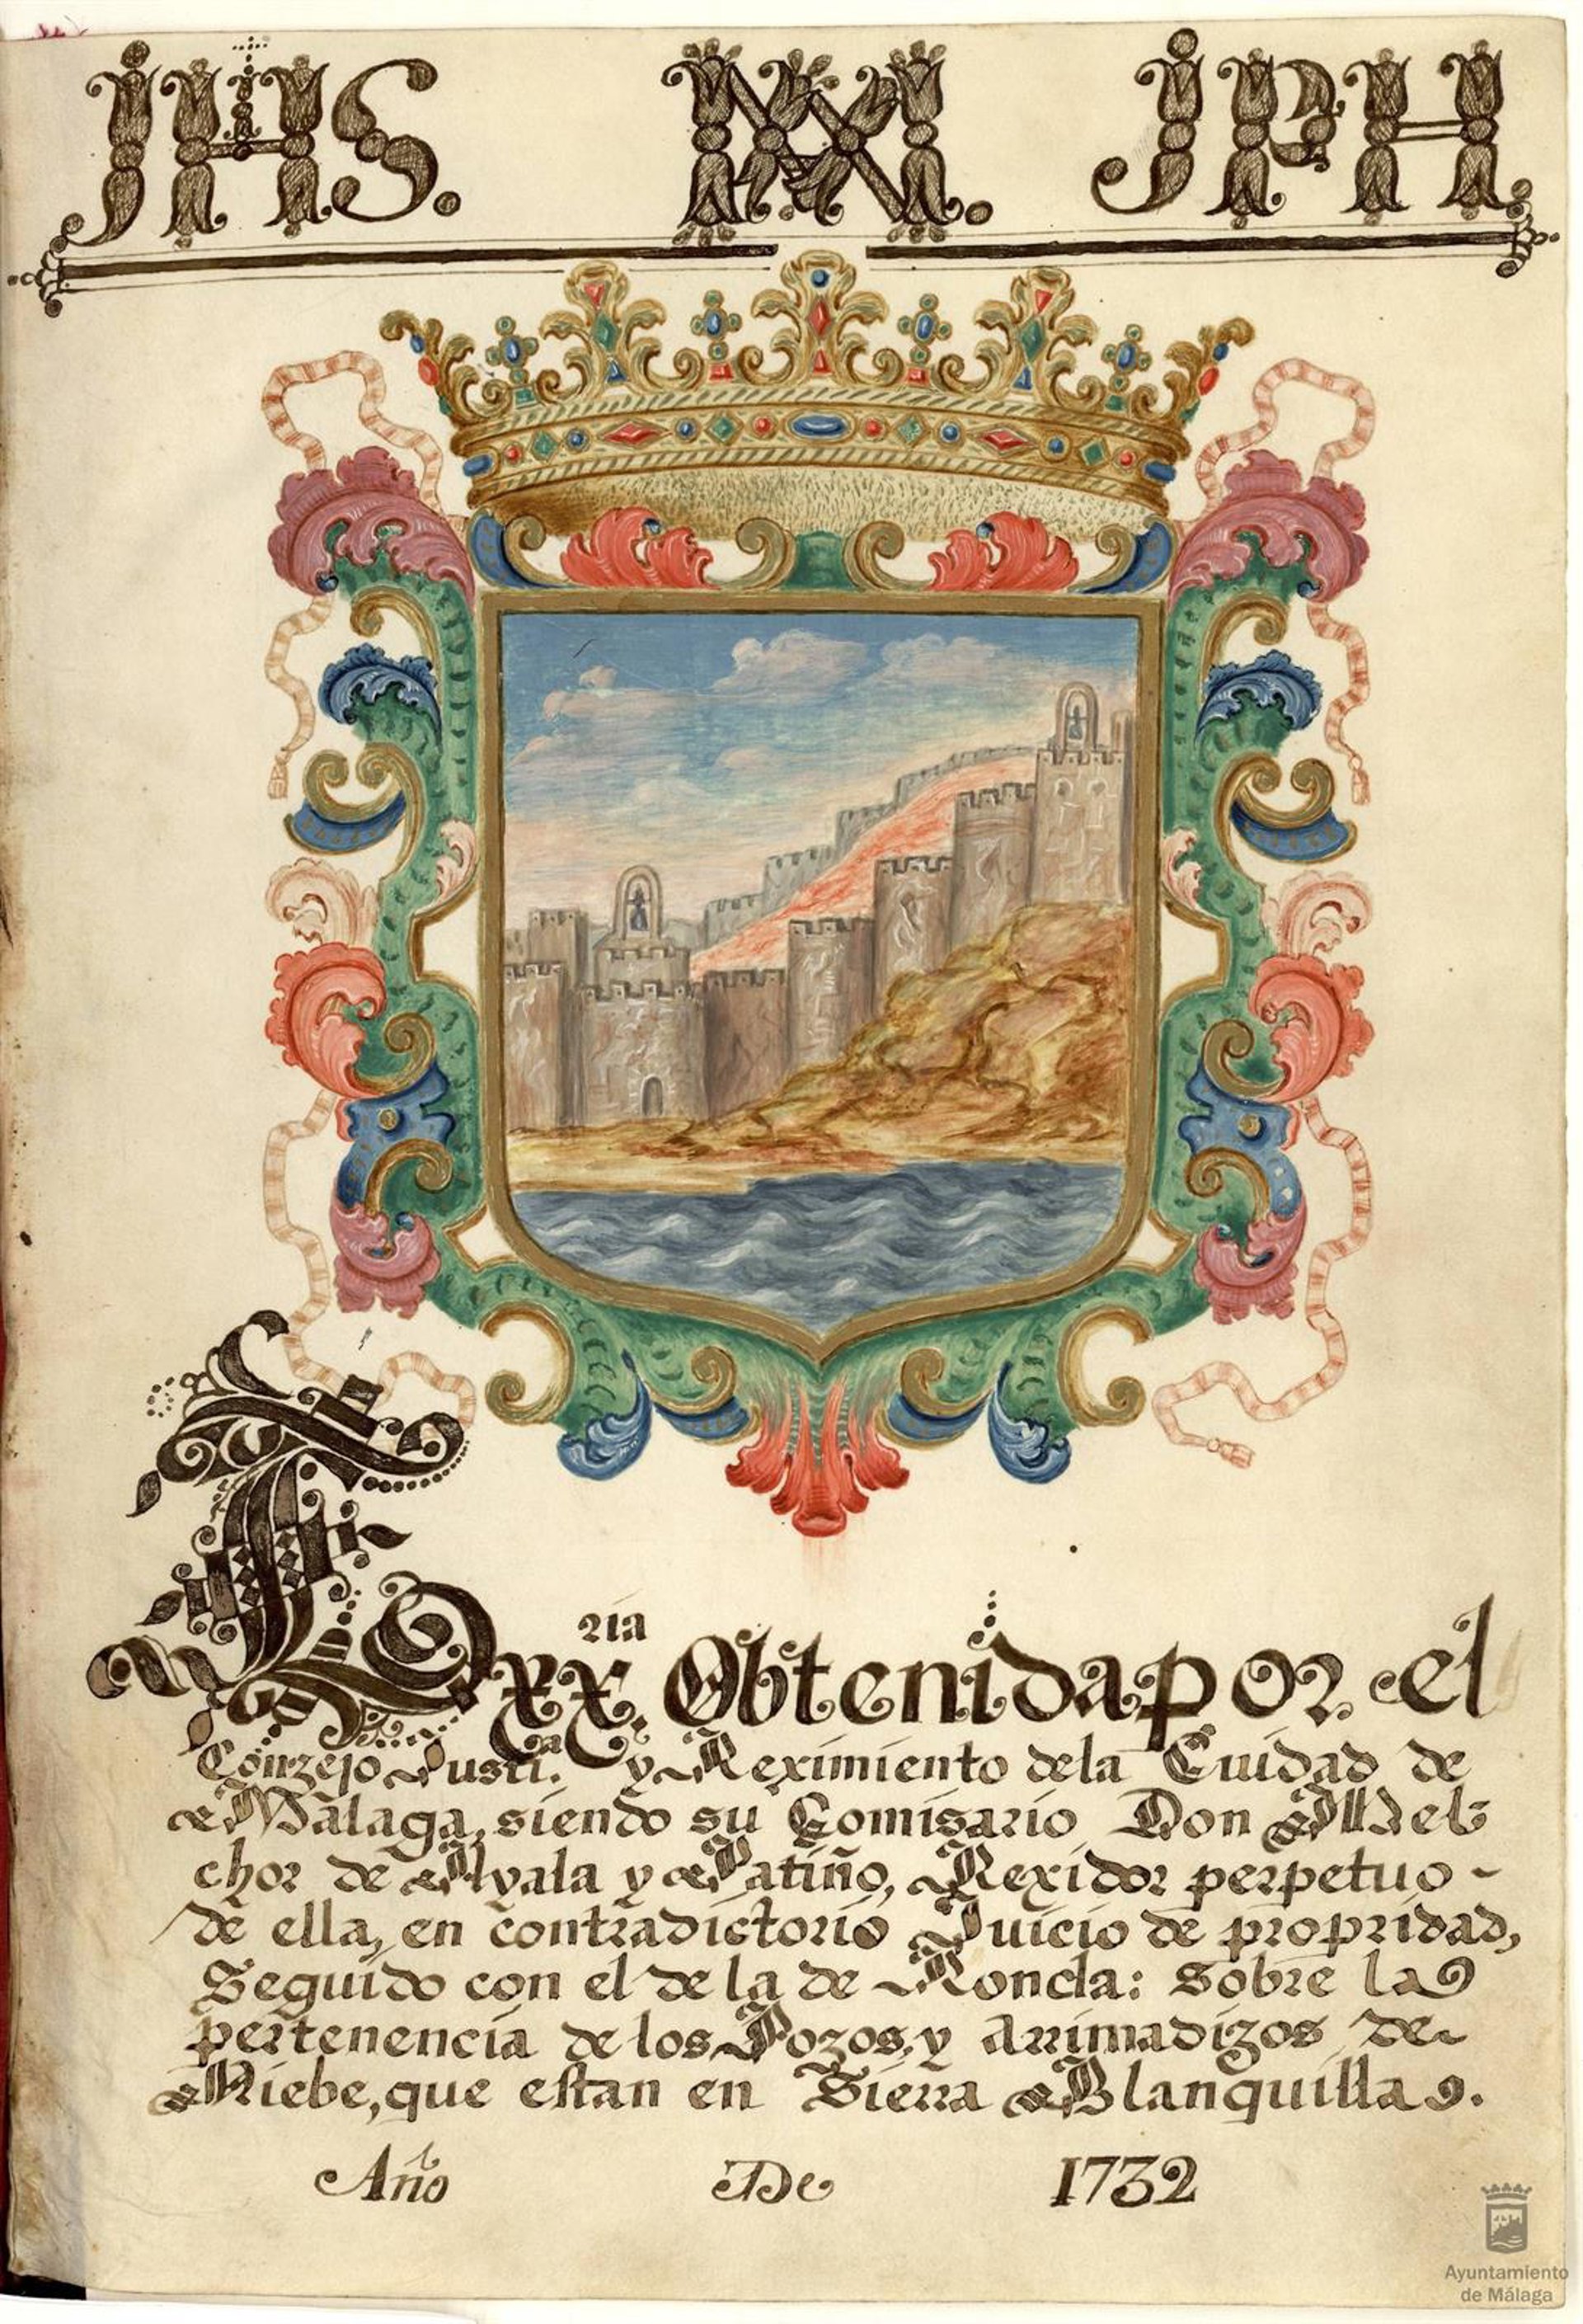 JHS. MA. JPH
Exx.ria Obtenida por el
Conzejo Justi.a y Reximiento de la Cuidad de
Malaga, siendo su Comisario Don Mel-
chor de Ayala y Patiño, Rexidor perpetuo -
de ella, en contradictorio Juicio de propridad,
Seguido con el de la de Ronda: sobre la
pertenencia de los Pozos, y Arrimadizos de
Niebe, que estan en Sierra Blanquilla.
Año De 1732
Ayuntamiento
de Málaga